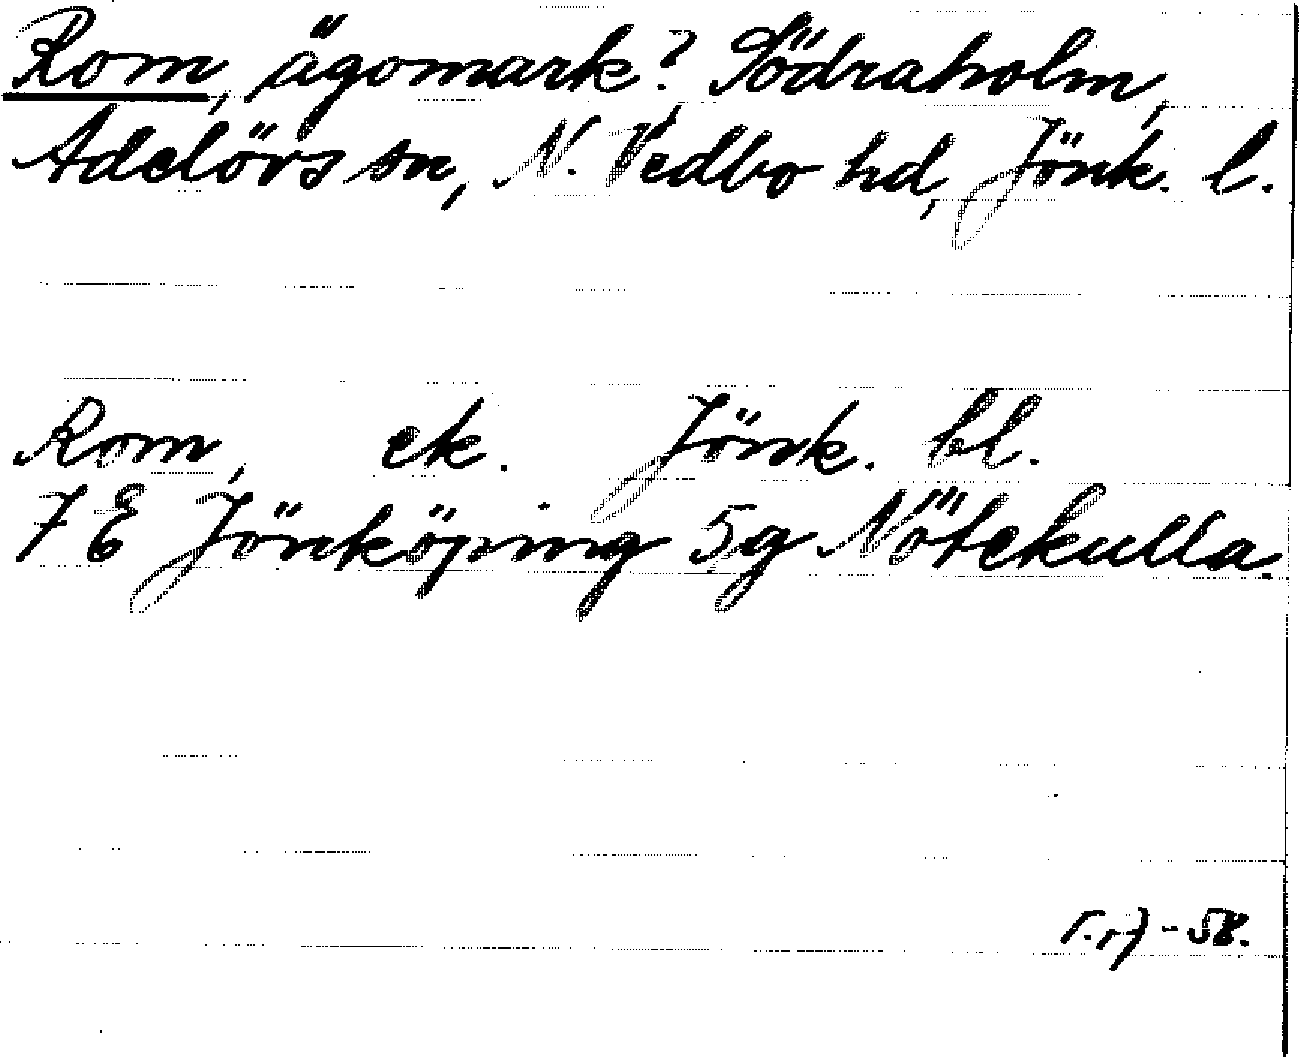 Rom, ägomark? Södraholm,
Adelövs sn, N. Vedbo hd, Jönk. l.
Rom, ek. Jönk. bl.
7 E Jönköping 5g Nötekulla.
-58.